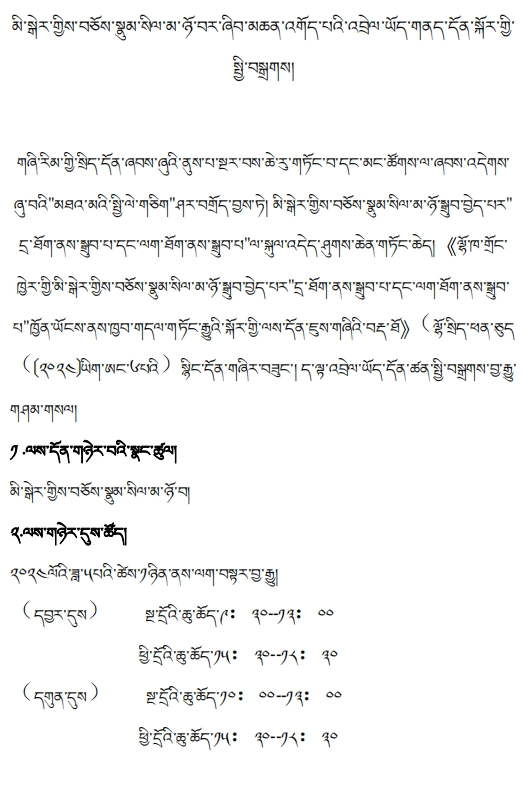 མི་སྒེར་གྱིས་བཅོས་སྣུམ་སིལ་མ་ཉོ་བར་ཞིབ་མཆན་འགོད་པའི་འབྲེལ་ཡོད་གནད་དོན་སྐོར་གྱི་
སྤྱི་བསྒྲགས།
གཞི་རིམ་གྱི་སྲིད་དོན་ཞབས་ཞུའི་ནུས་པ་སྔར་བས་ཆེ་རུ་གཏོང་བ་དང་མང་ཚོགས་ལ་ཞབས་འདེགས་
ཞུ་བའི"མཐའ་མའི་སྤྱི་ལེ་གཅིག"ཤར་བགྲོད་བྱས་ཏེ། མི་སྒེར་གྱིས་བཅོས་སྣུམ་སིལ་མ་ཉོ་སྒྲུབ་བྱེད་པར"
དྲ་ཐོག་ནས་སྒྲུབ་པ་དང་ལག་ཐོག་ནས་སྒྲུབ་པ"ལ་སྐུལ་འདེད་ཤུགས་ཆེན་གཏོང་ཆེད། 《ལྷོ་ཁ་གྲོང་
ཁྱེར་གྱི་མི་སྒེར་གྱིས་བཅོས་སྣུམ་སིལ་མ་ཉོ་སྒྲུབ་བྱེད་པར"དྲ་ཐོག་ནས་སྒྲུབ་པ་དང་ལག་ཐོག་ནས་སྒྲུབ་
པ"ཁྱོན་ཡོངས་ནས་ཁྱབ་གདལ་གཏོང་རྒྱུའི་སྐོར་གྱི་ལས་དོན་ཇུས་གཞིའི་བརྡ་ཐོ》（ལྷོ་སྲིད་ཕན་ཅུད
（(༢༠༢༤)ཡིག་ཨང་༦པའི）སྙིང་དོན་གཞིར་བཟུང་། ད་ལྟ་འབྲེལ་ཡོད་དོན་ཚན་སྤྱི་བསྒྲགས་བྱ་རྒྱུ་
གཤམ་གསལ།
༡.ལས་དོན་གཉེར་བའི་སྣང་ཚུལ།
མི་སྒེར་གྱིས་བཅོས་སྣུམ་སིལ་མ་ཉོ་བ།
༢.ལས་གཉེར་དུས་ཚོད།
༢༠༢༤ལོའི་ཟླ་༥པའི་ཚེས་༡ཉིན་ནས་ལག་བསྟར་བྱ་རྒྱུ།
（དབྱར་དུས） སྔ་དྲོའི་ཆུ་ཚོད་༩： ༣༠--༡༣： ༠༠
ཕྱི་དྲོའི་ཆུ་ཚོད་༡༥： ༣༠--༡༨： ༣༠
（དགུན་དུས） སྔ་དྲོའི་ཆུ་ཚོད་༡༠： ༠༠--༡༣： ༠༠
ཕྱི་དྲོའི་ཆུ་ཚོད་༡༥： ༣༠--༡༨： ༣༠